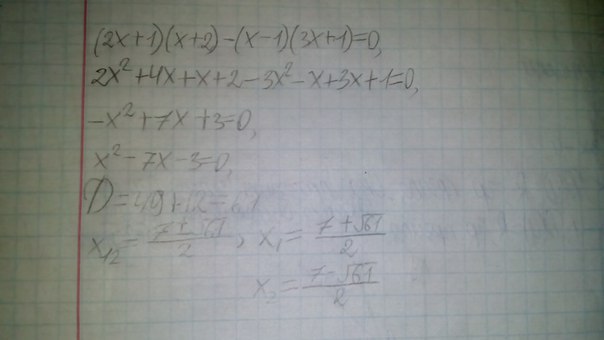 (2x+1)(x+2)-(x-1)(3x+1)=0,
2x²+4x+x+2-3x²-x+3x+1=0,
-x²+7x+3=0,
x²-7x-3=0,
D=49+12=61
x₁₂=(7±√61)/2, x₁=(7+√61)/2
x₂=(7-√61)/2